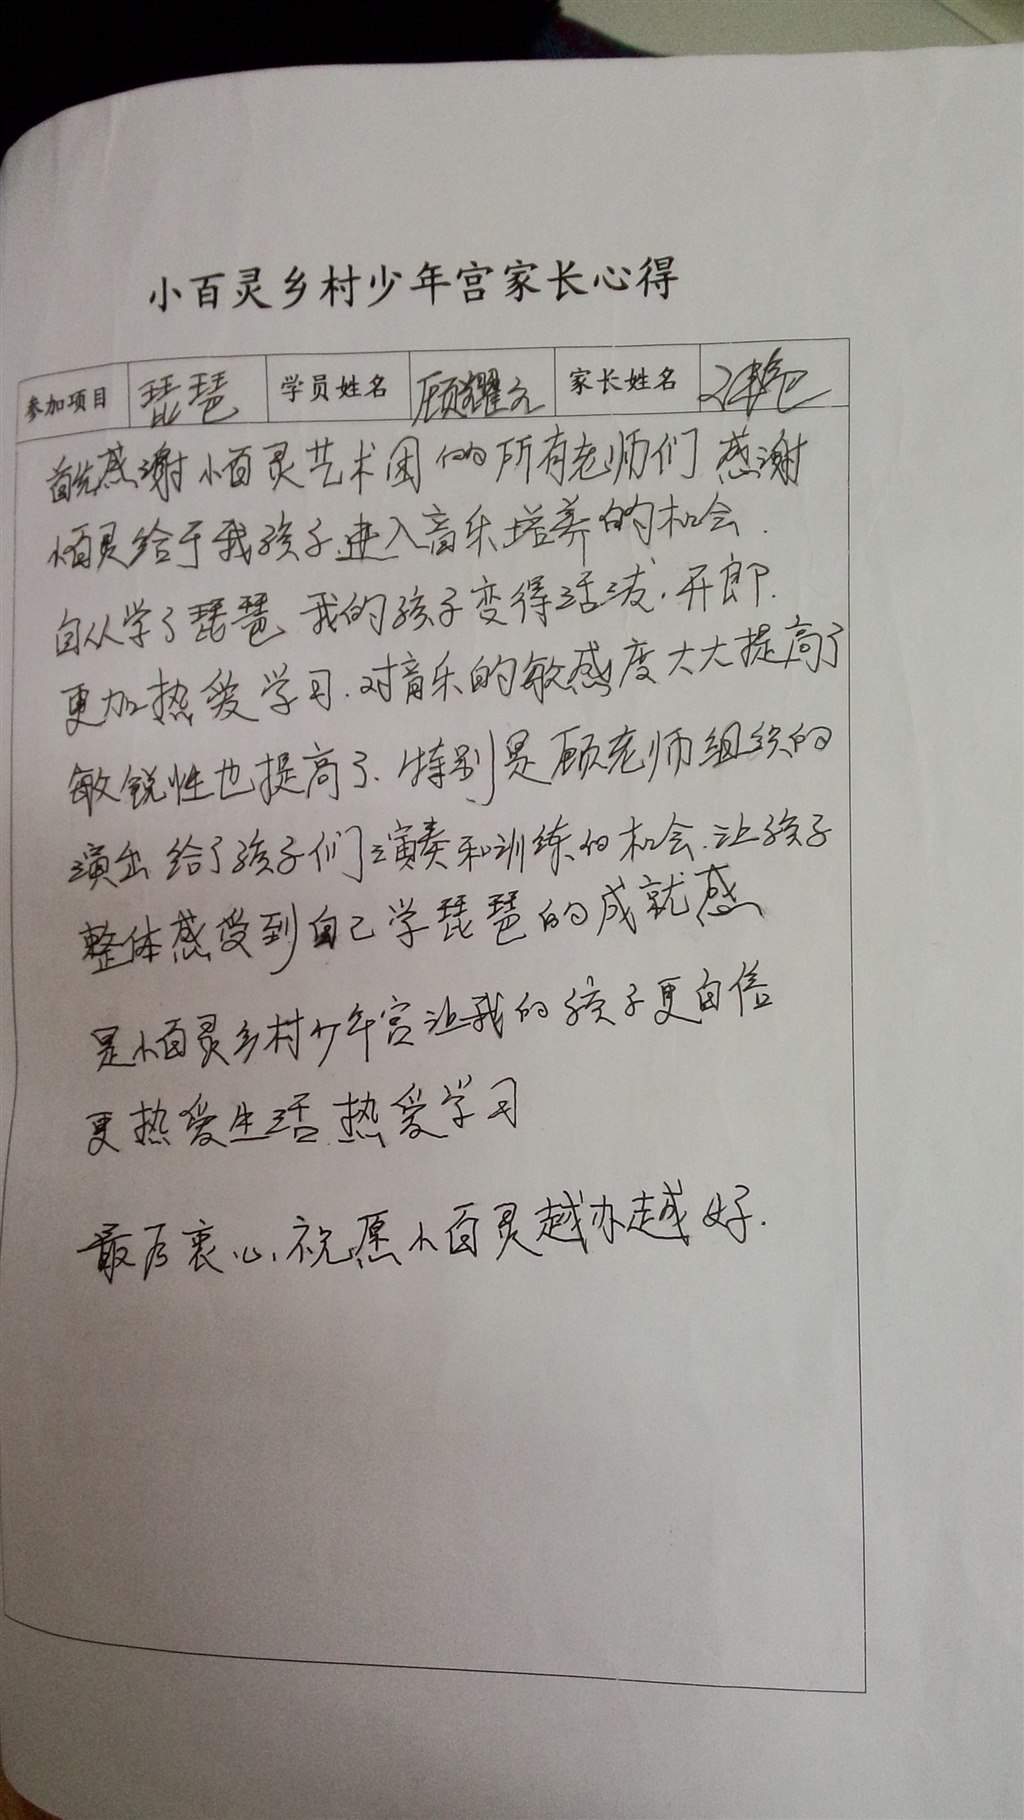 小百灵乡村少年宫家长心得
参加项目 琵琶 学员姓名 顾耀文 家长姓名
首先感谢小百灵艺术团的所有老师们 感谢
小百灵给于我孩子进入音乐培养的机会.
自从学了琵琶 我的孩子变得活泼.开郎.
更加热爱学习.对音乐的敏感度大大提高了
敏锐性也提高了.特别是顾老师组织的
演出 给了孩子们演奏和训练的机会.让孩子
整体感受到自己学琵琶的成就感
是小百灵乡村少年宫让我的孩子更自信
更热爱生活.热爱学习
最后衷心.祝愿小百灵越办越好.